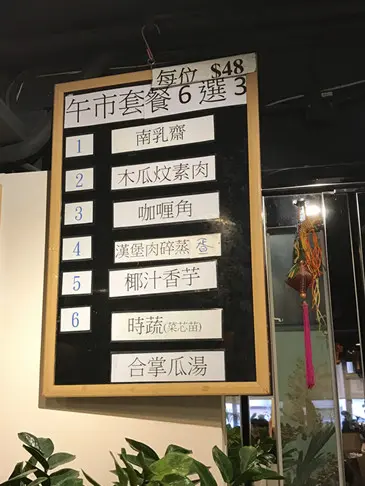 每位 $48
午市套餐 6 選 3
1 南乳齋
2 木瓜炆素肉
3 咖喱角
4 漢堡肉碎蒸蛋
5 椰汁香芋
6 時蔬(菜芯苗)
合掌瓜湯